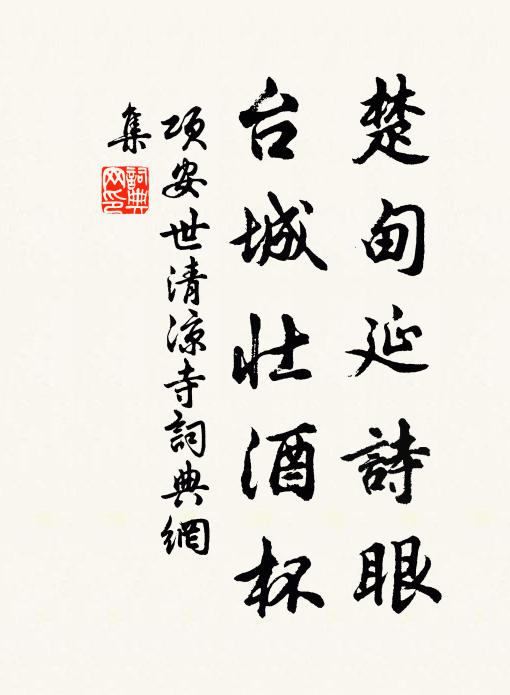 楚甸延詩眼
台城壮酒杯
項安世清凉寺詞典網
集
詞典
网印